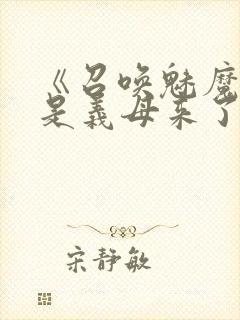 《召唤魅魔
是义母来了
宋静敏